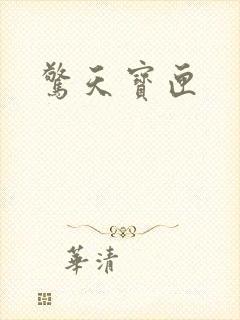 驚天寶匣
華清